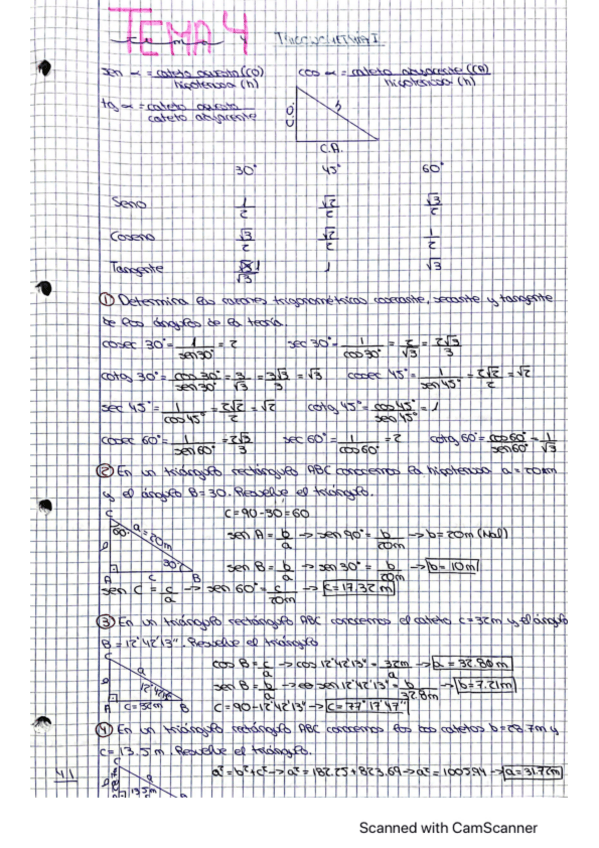 TEMA 4
Tema 4 TRIGONOMETRÍA I
sen α = cateto opuesto (CO) / hipotenusa (h) cos α = cateto adyacente (CA) / hipotenusa (h)
tg α = cateto opuesto / cateto adyacente
h
C.O.
C.A.
30° 45° 60°
Seno 1/2 √2/2 √3/2
Coseno √3/2 √2/2 1/2
Tangente 1/√3 1 √3
① Determina las razones trigonométricas cosecante, secante y tangente
de los ángulos de la teoría.
cosec 30° = 1/sen30° = 2 sec 30° = 1/cos30° = 2/√3 = 2√3/3
cotg 30° = cos 30°/sen 30° = 3/√3 = 3√3/3 = √3 cosec 45° = 1/sen 45° = 2√2/2 = √2
sec 45° = 1/cos 45° = 2√2/2 = √2 cotg 45° = cos 45°/sen 45° = 1
cosec 60° = 1/sen 60° = 2√3/3 sec 60° = 1/cos 60° = 2 cotg 60° = cos 60°/sen 60° = 1/√3
② En un triángulo rectángulo ABC conocemos la hipotenusa a = 20m
y el ángulo B = 30. Resuelve el triángulo.
C
60°
a = 20m
b
30°
A c B
C = 90 - 30 = 60
sen A = b/a → sen 90° = b/20m → b = 20m (Mal)
sen B = b/a → sen 30° = b/20m → b = 10m
sen C = c/a → sen 60° = c/20m → c = 17.32m
③ En un triángulo rectángulo ABC conocemos el cateto c = 32m y el ángulo
B = 12°42'13''. Resuelve el triángulo
C
a
b
12°42'13''
A c = 32m B
cos B = c/a → cos 12°42'13'' = 32m/a → a = 32.80m
sen B = b/a → sen 12°42'13'' = b/32.8m → b = 7.21m
C = 90 - 12°42'13'' → C = 77°17'47''
④ En un triángulo rectángulo ABC conocemos los dos catetos b = 28.7m y
c = 13.5m. Resuelve el triángulo.
C
a
13.5m
B
a² = b² + c² → a² = 182.25 + 823.69 → a² = 1005.94 → a = 31.72m
41
Scanned with CamScanner